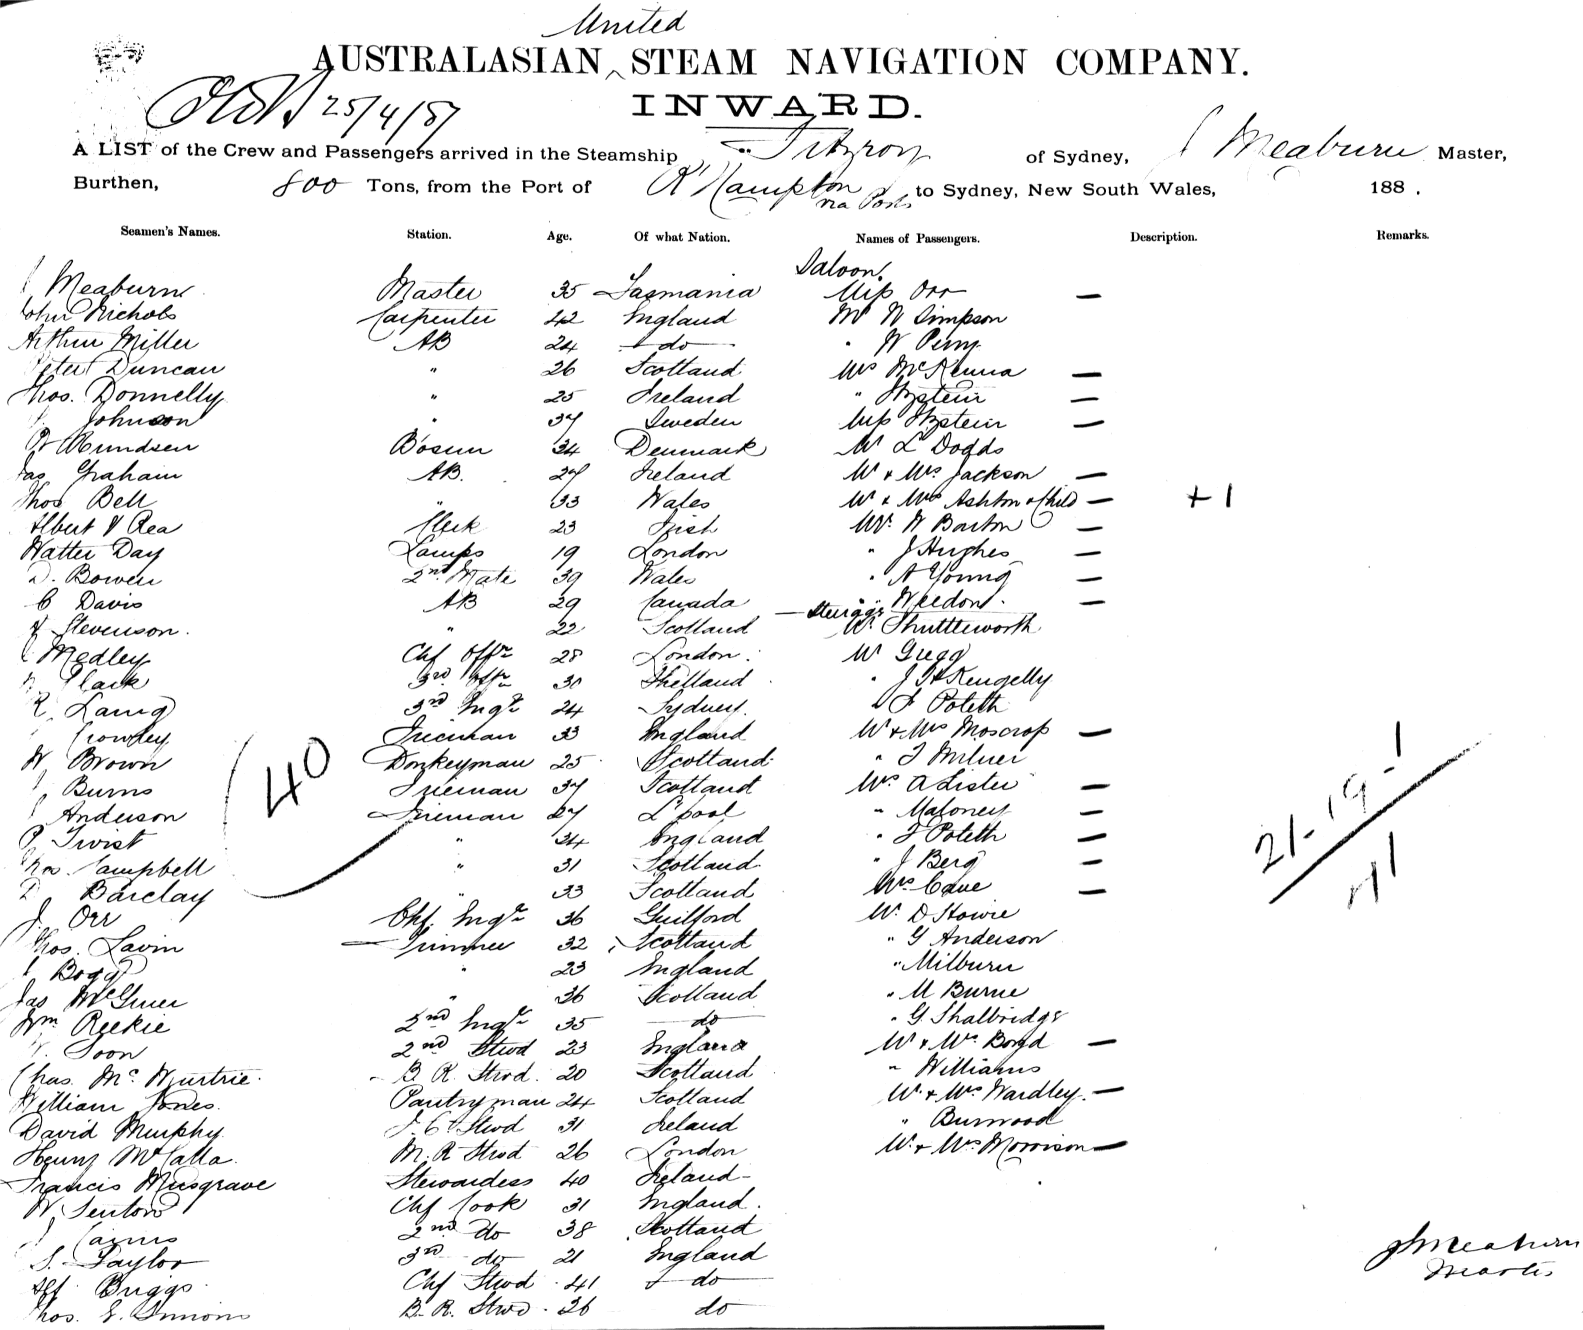 United
AUSTRALASIAN ^ STEAM NAVIGATION COMPANY.
25/4/87
INWARD.
A LIST of the Crew and Passengers arrived in the Steamship Fitzroy of Sydney, J Meaburn Master,
Burthen, 800 Tons, from the Port of R'Hampton via Ports to Sydney, New South Wales, 188 .
Seamen's Names. Station. Age. Of what Nation. Names of Passengers. Description. Remarks.
Saloon.
J Meaburn Master 35 Tasmania Miss Orr —
John Nichols Carpenter 42 England Mr W Simpson
Arthur Miller AB 24 do " W Perry
Peter Duncan " 26 Scotland Mrs McKenna —
Thos. Donnelly " 25 Ireland " Itzstein —
Johnson " 37 Sweden Miss Itzstein —
Bosun 34 Denmark Mr L Dodds
Jas Graham AB. 27 Ireland Mr & Mrs Jackson —
Thos Bell " 33 Wales Mr & Mrs Ashton & Child — +1
Albert V Rea Clerk 23 Irish Mr. W Barton —
Walter Day Lamps 19 London " J Hughes —
D. Bowen 2nd Mate 39 Wales " A Young —
C Davis AB 29 Canada " Weedon. —
— Steerage
Stevenson. " 22 Scotland Mr Shuttleworth
J Medley Chf Offr 28 London. Mr Gregg
Clark 3rd Offr 30 Shetland " J H Kengelly
R. Laing 3rd Engr 24 Sydney. " J Poteth
Crowley Fireman 33 England Mr & Mrs Moscrop —
W. Brown Donkeyman 25 Scotland " J Milner
J Burns Fireman 37 Scotland Mrs A Lister —
J Anderson Fireman 27 L'pool " Maloney —
P Twist " 34 England " J Poteth —
Thos. Campbell " 31 Scotland " J Berg —
Barclay " 33 Scotland Mrs Cave —
40
21-19-1
41
J. Orr Chf. Engr 36 Guilford Mr D Howie
Thos. Lavin Trimmer 32 Scotland " G Anderson
J Bogg " 23 England " Milburn
Jas McGiver " 36 Scotland " M Burne
Wm Reekie 2nd Engr 35 do " G Shalbridge
Toon 2nd Stwd 23 England Mr & Mrs Boyd —
Chas. McWurtrie. B. R. Stwd. 20 Scotland " Williams
William Jones. Pantryman 24 Scotland Mr & Mrs Wardley. —
David Murphy. Stwd 31 Ireland " Burwood
Henry McCalla. M. R Stwd 26 London Mr & Mrs Morrison —
Francis Musgrave Stewardess 40 Ireland
W. Senton Chf Cook 31 England.
J Cairns 2nd do 38 Scotland
S. Taylor 3rd do 21 England
Alf Briggs. Chf Stwd 41 do
Thos. E. B. R. Stwd. 26 do
J Meaburn
Master